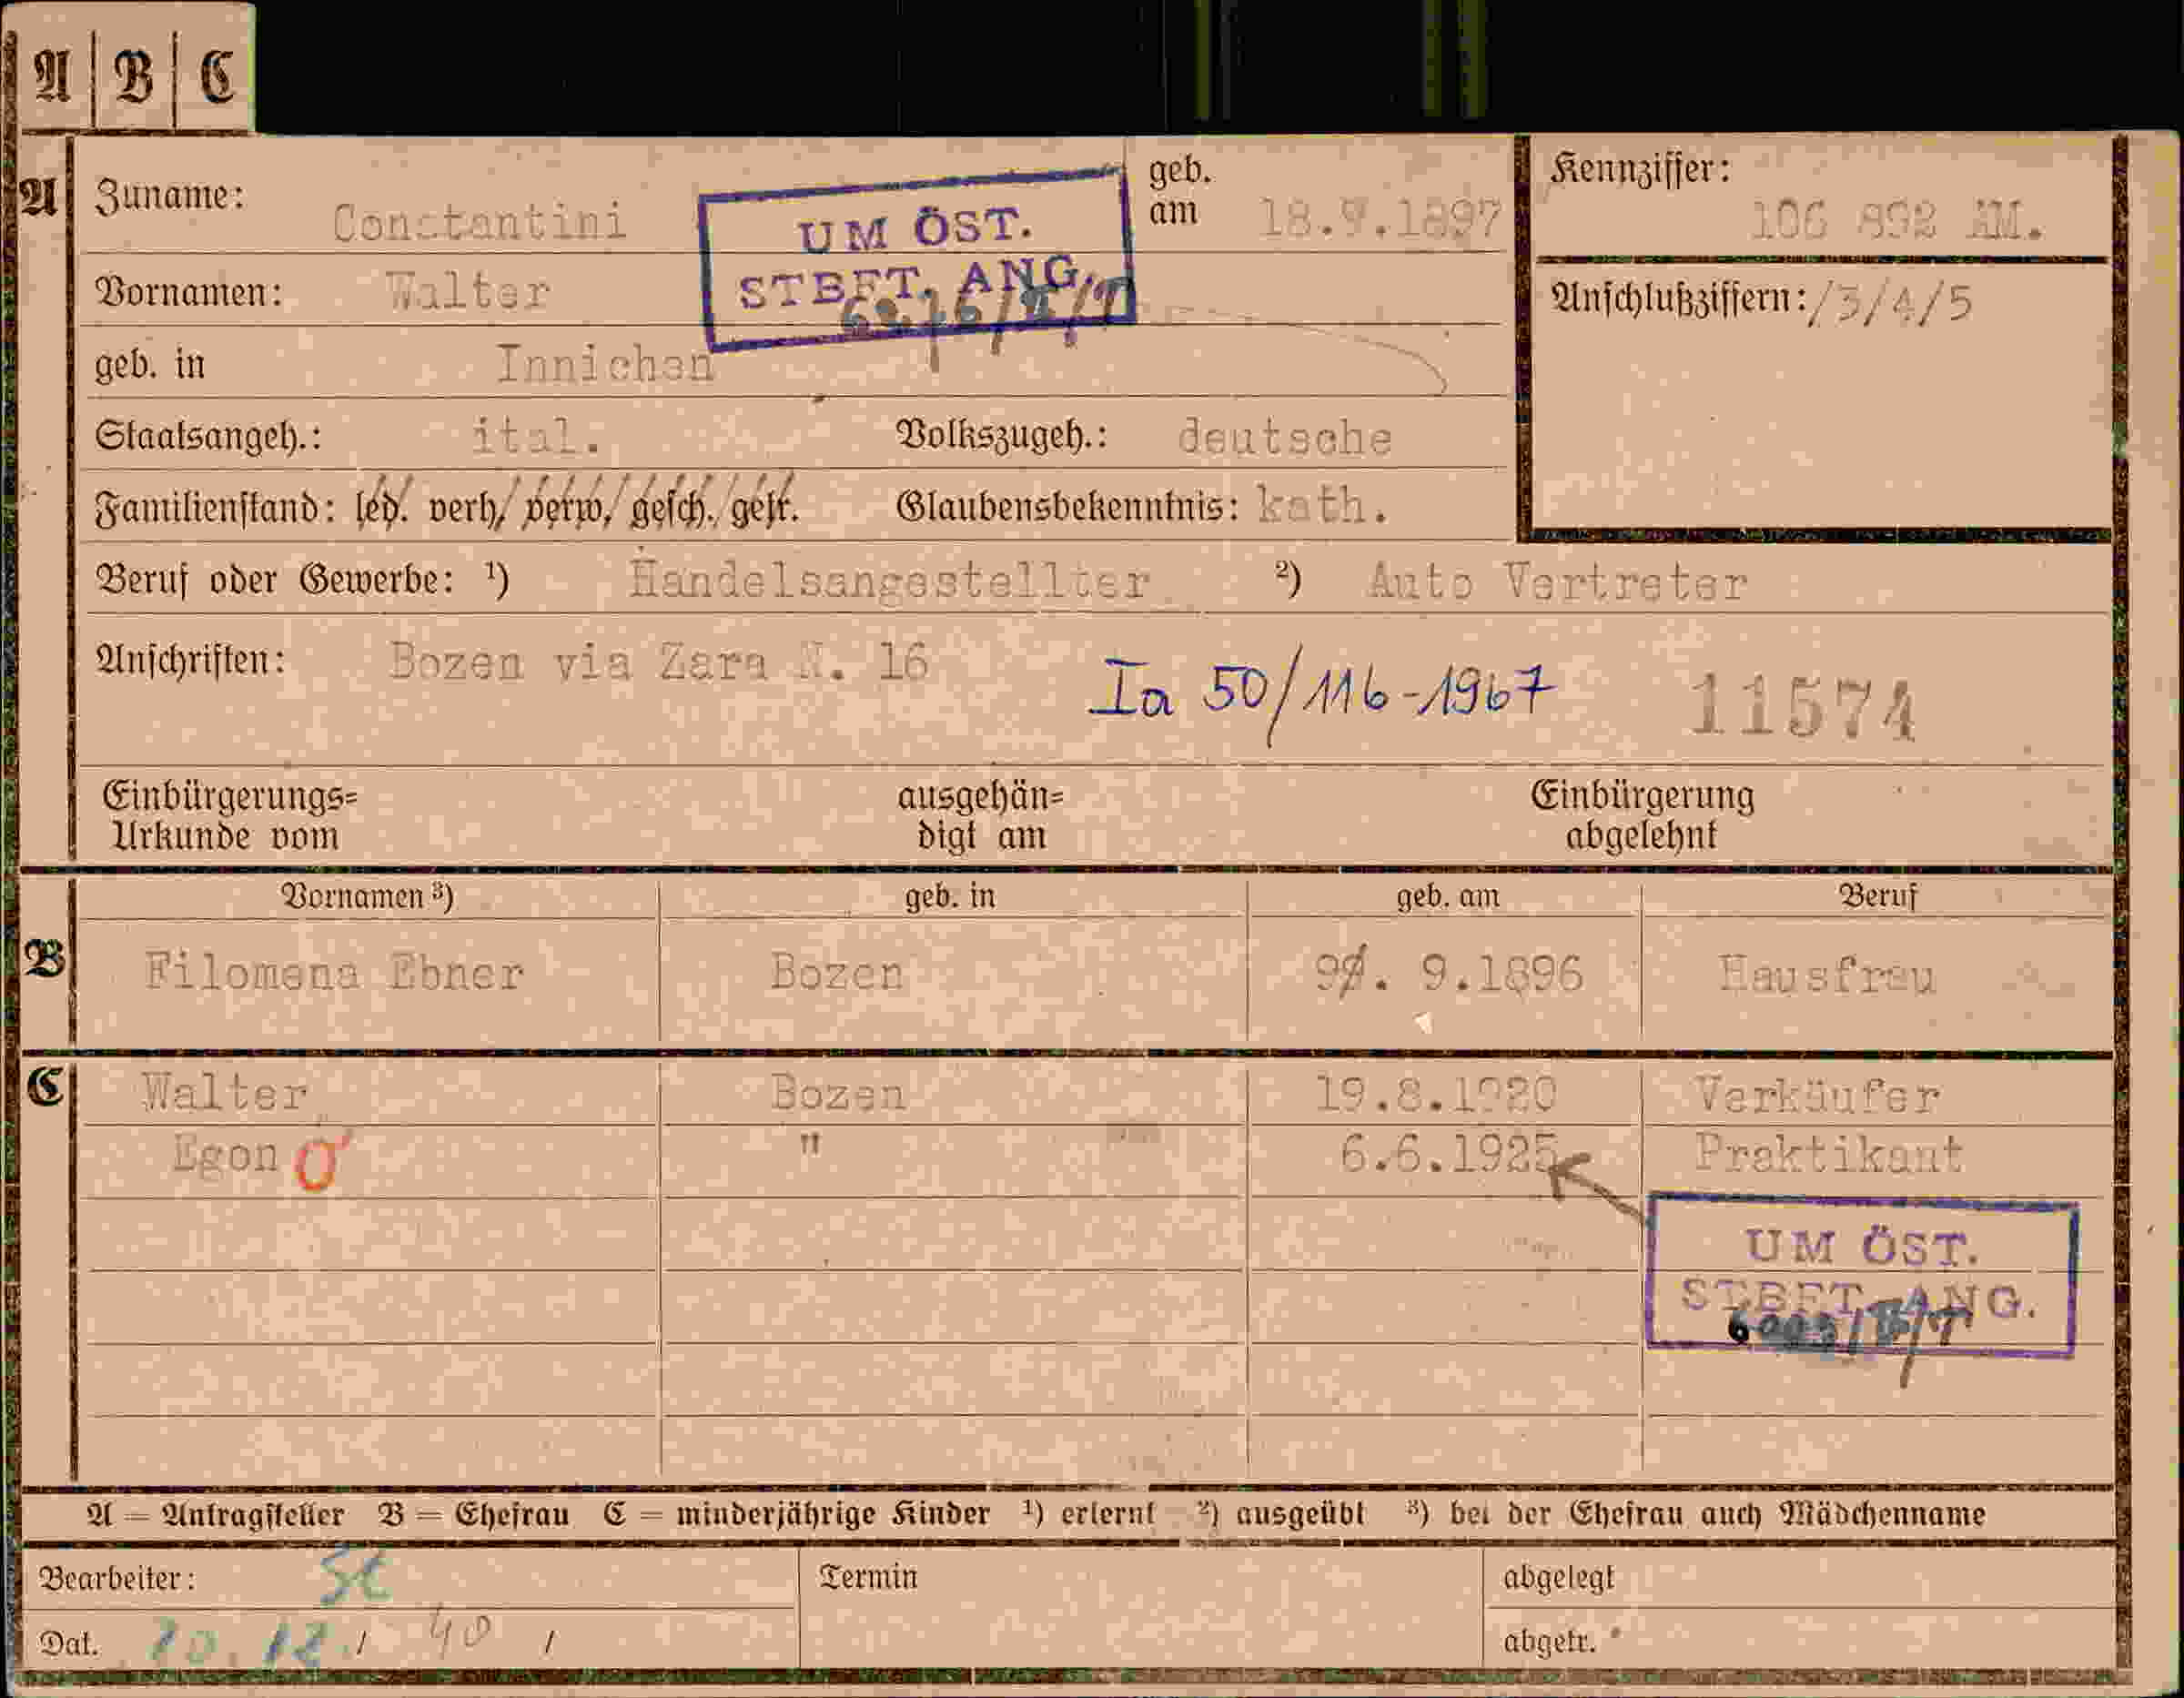 A | B | C
A Zuname: Constantini
UM ÖST.
STBFT. ANG.
geb. am 18.9.1897
Kennziffer:
106 892 AM.
Vornamen: Walter
Anschlußziffern: /3/4/5
geb. in Innichen
Staatsangeh.: ital. Volkszugeh.: deutsche
Familienstand: led. verh, verw, gesch. getr. Glaubensbekenntnis: kath.
Beruf oder Gewerbe: ¹) Handelsangestellter ²) Auto Vertreter
Anschriften: Bozen via Zara N. 16
Ia 50/116-1967
11574
Einbürgerungs= ausgehän= Einbürgerung
Urkunde vom digt am abgelehnt
Vornamen ³) geb. in geb. am Beruf
B Filomena Ebner Bozen 9. 9.1896 Hausfrau
C Walter Bozen 19.8.1920 Verkäufer
Egon " 6.6.1925 Praktikant
UM ÖST.
STBFT. ANG.
A = Antragsteller B = Ehefrau C = minderjährige Kinder ¹) erlernt ²) ausgeübt ³) bei der Ehefrau auch Mädchenname
Bearbeiter: St Termin abgelegt
Dat. 10.12./ 40 / abgetr.